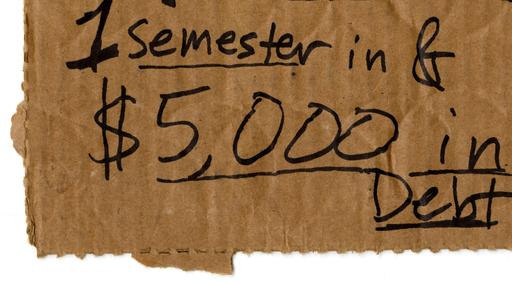 1 semester in &
$5,000 in
Debt